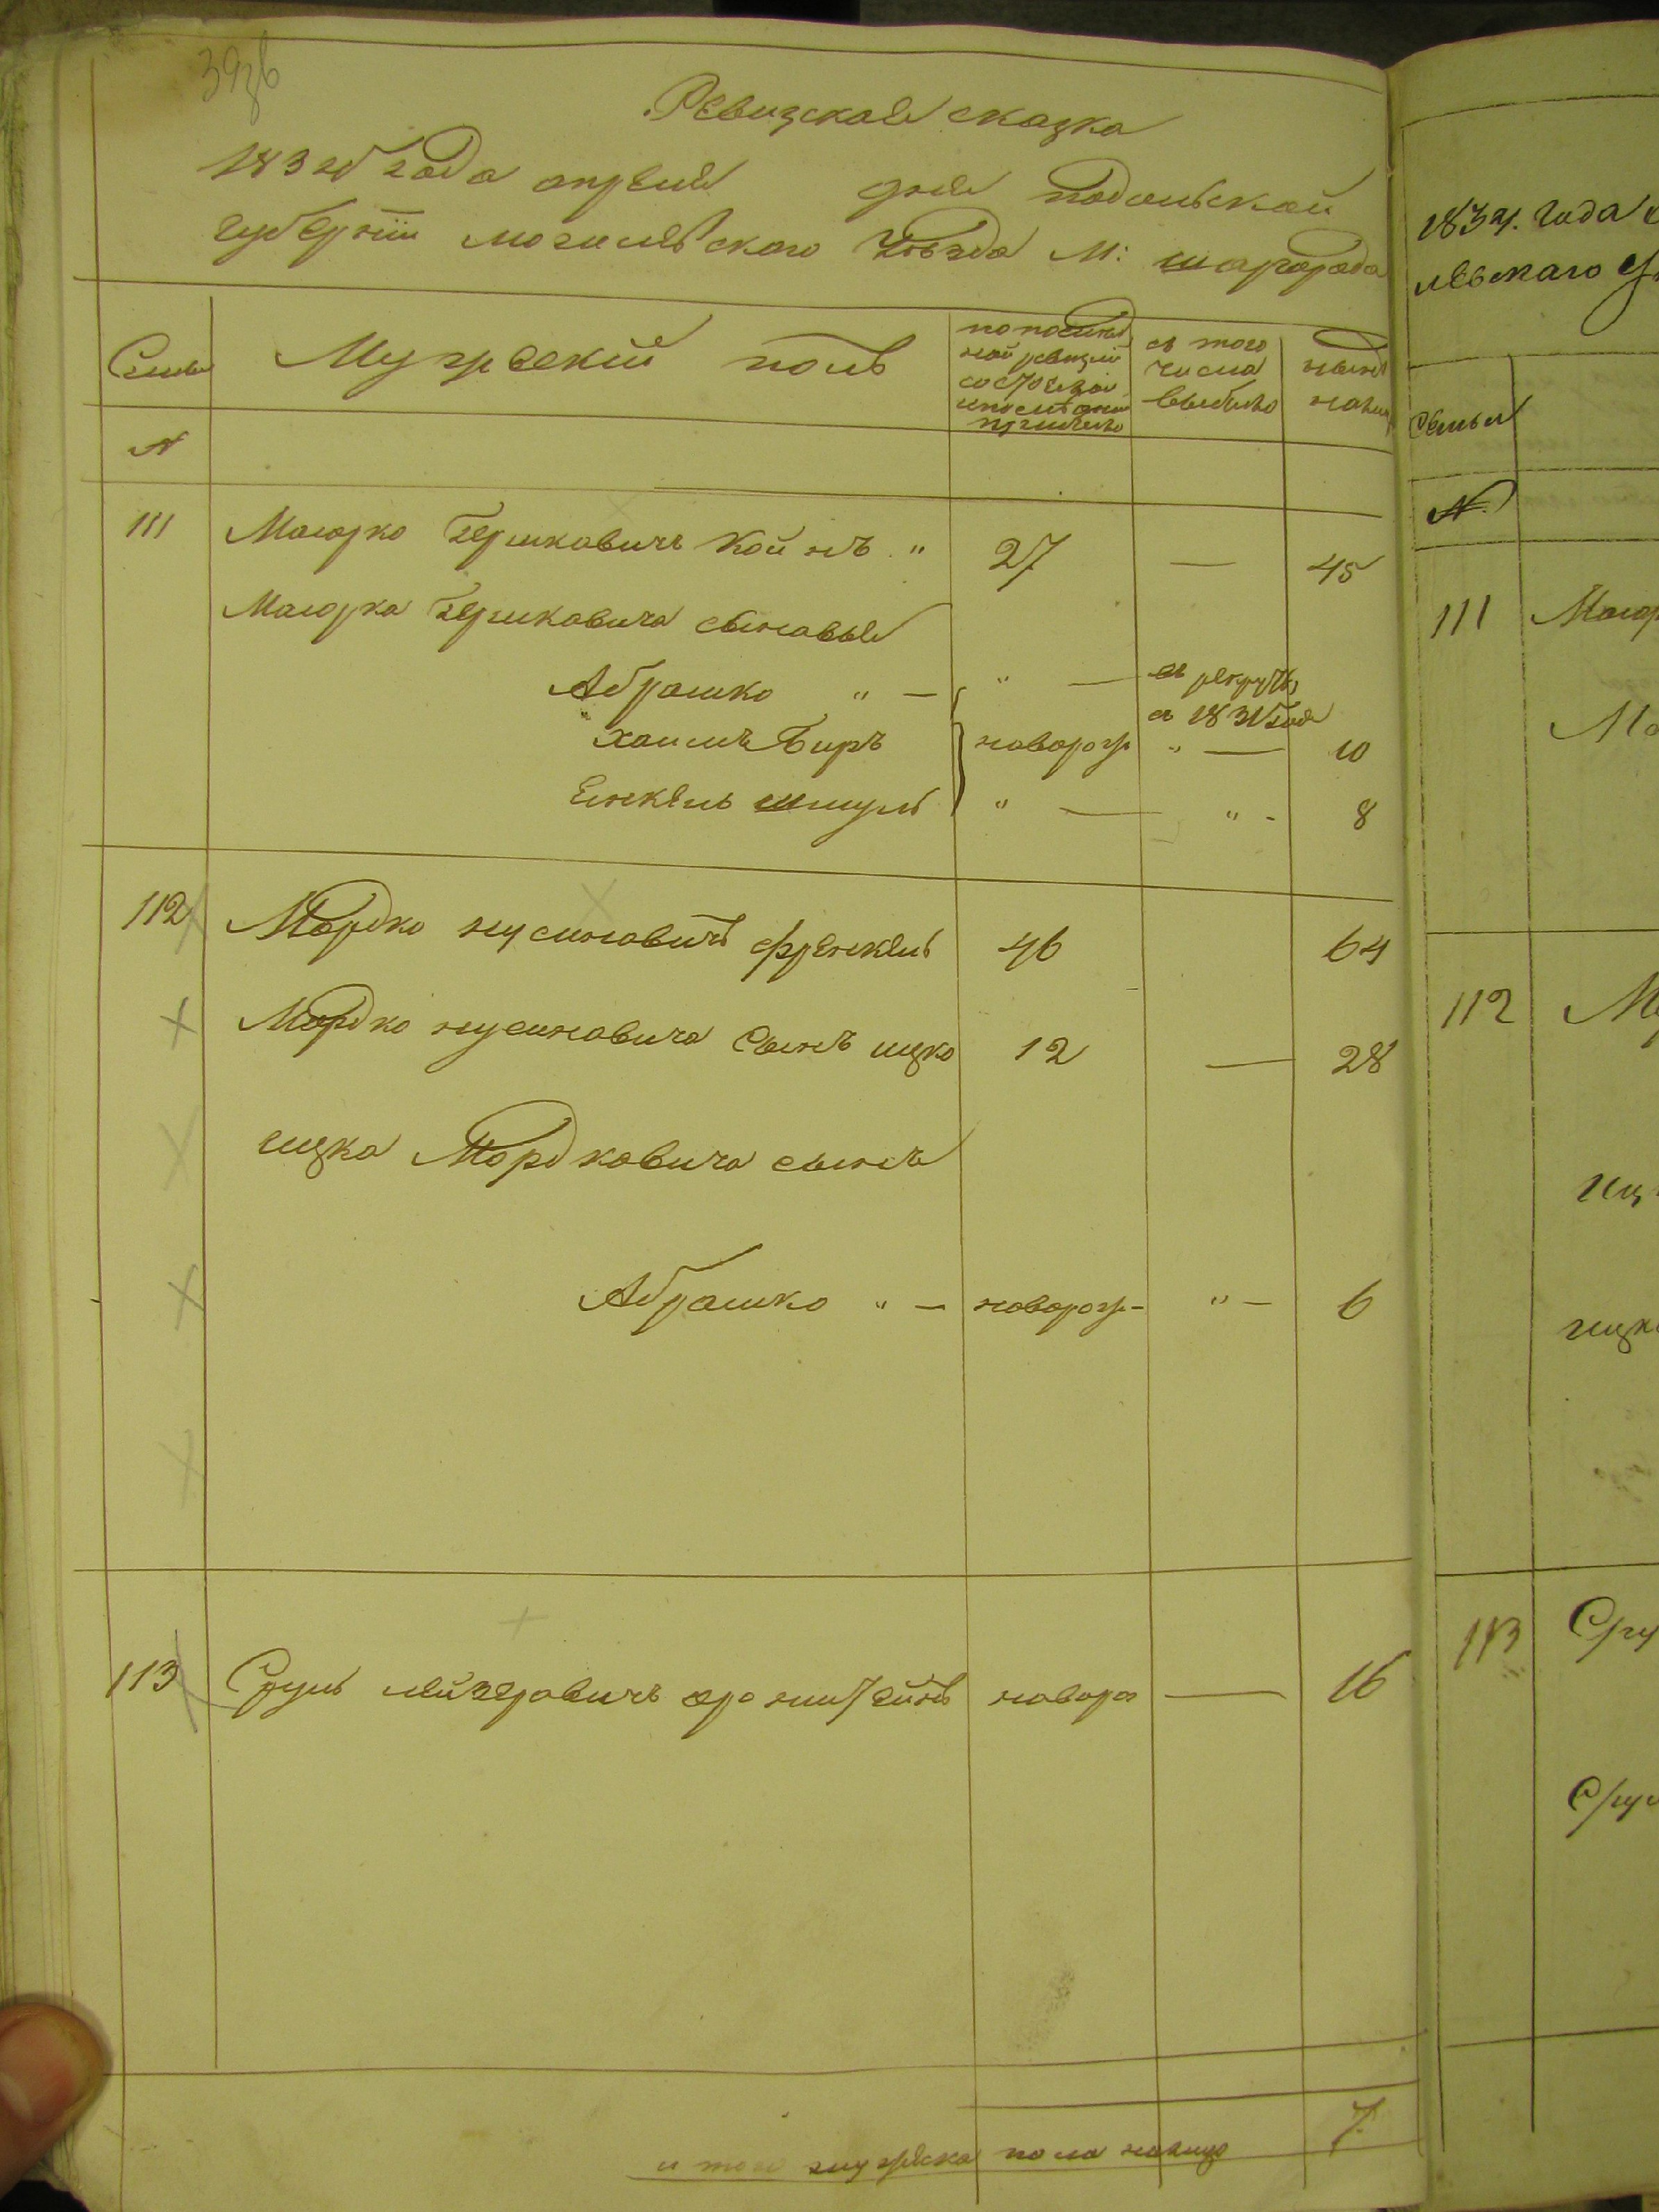 39зв
Ревизская сказка
1834 года апреля дня Подольской
губернии могилевского уезда М: шаргорода
Семьи
Мужеский полъ
по последней ревизии состояло и после оной прибыло
из того числа выбыло
ныне налицо
№
111 Маиорко Гершковичъ Койнъ " 27 — 45
Маиорка Гершковича сыновья
Абрашко " — " — въ рекруты въ 1831 годе
хаимъ Биръ новорож " — 10
Енкель шмуль " — " - 8
112 Мордко нусиновичъ френкель 46 64
Мордко нусиновича Сынъ ицко 12 — 28
ицка Мордковича сынъ
Абрашко " — новорож - " — 6
113 Сруль лейзеровичъ новорож — 16
и того мужеска пола налицо 7.
1834. года
левскаго
Семьи
№
111
112
113